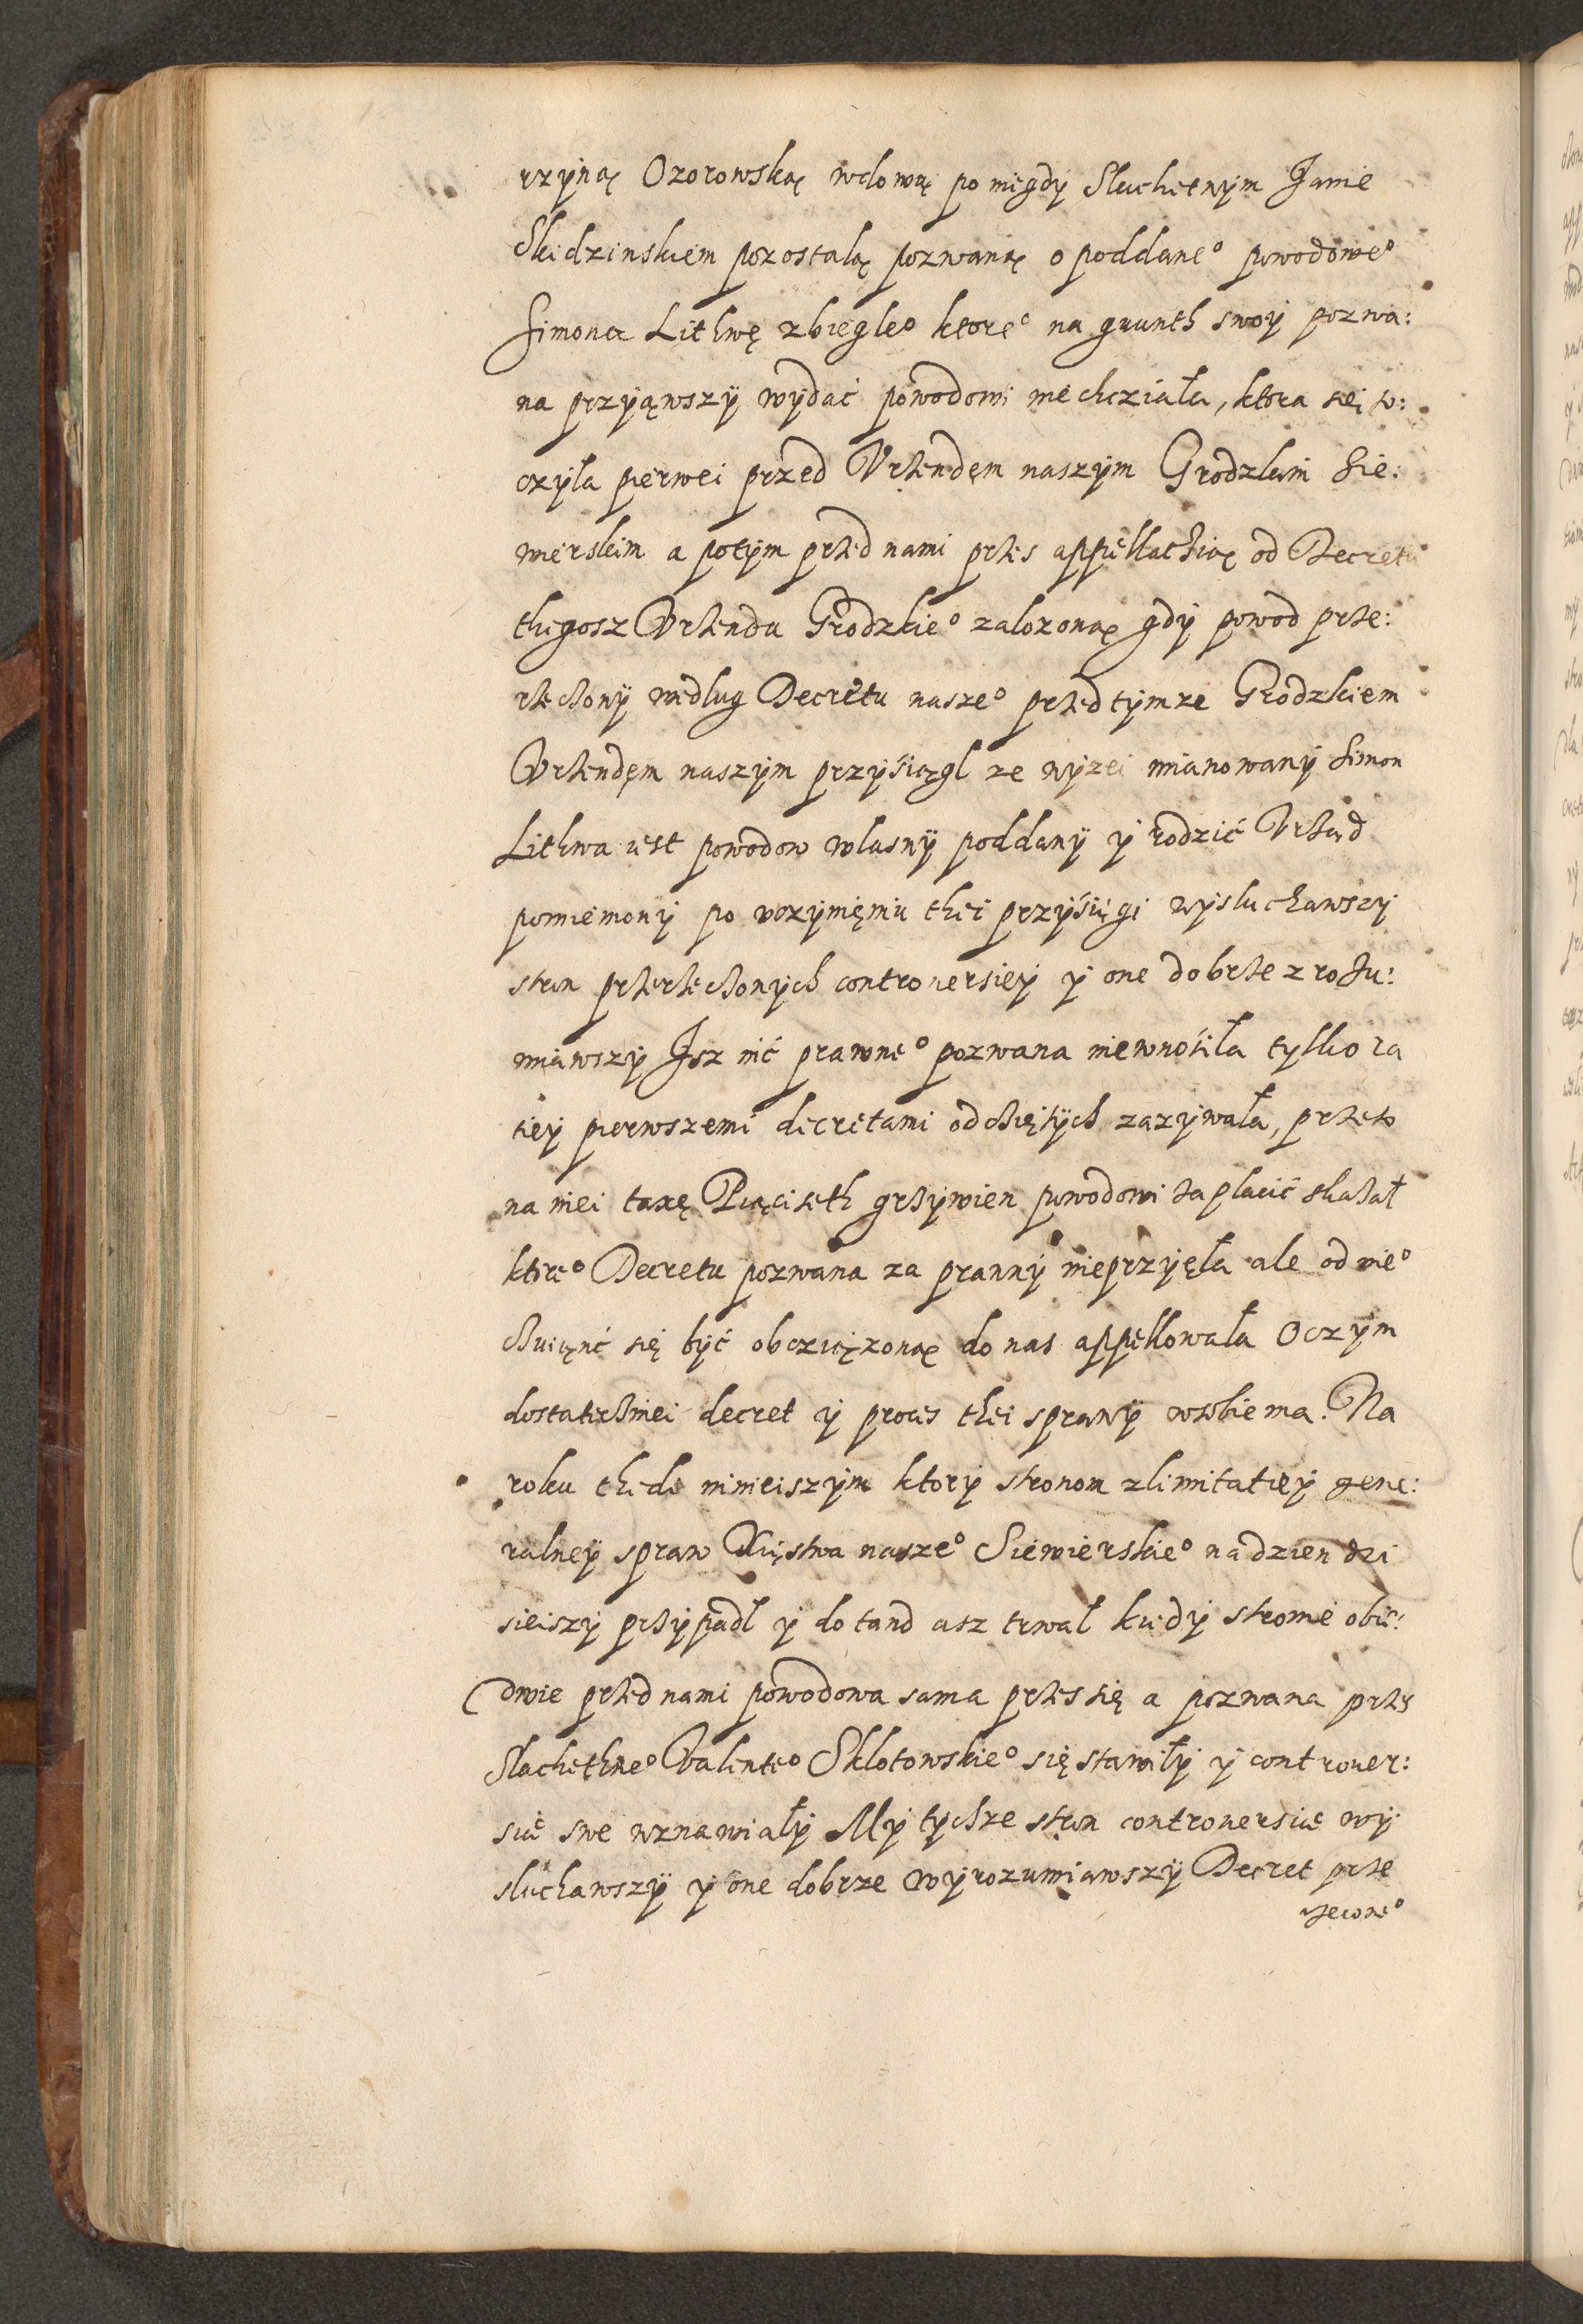 rzyną Ozorowską wdową po niegdy Slachetnym Janie
Skidzinskiem pozostałą pozwaną o poddane° powodowe°
Simona Lithwę zbiegle° które° na grunth swoy pozwa:
na przyiąwszy wydać powodowi niechciała, ktora się to:
czyła pierwei przed Vrzendem naszym Grodzkim Sie:
wierskim a potym przed nami przes appellachią od Decretu
thegosz Vrzendu Grodzkie° zalozoną gdy powod prze:
rzeczony wedlug Decretu nasze° przed tymze Grodzkiem
Vrzendem naszym przysiągl ze wyzei mianowany Simon
Lithwa iest powodow wlasny poddany y rodzić Vrząd
pomieniony po vczynieniu thei przysięgi wysluchawszy
stron przerzeczonych controuersiey y one dobrze zrozu:
miawszy Isz nic prawne° pozwana niewnosiła tylko ra
tiey pierwszemi decretami odciętych zazywała, przeto
na niei taxę Pięciseth grzywien powodowi zaplacić skazał
ktore° Decretu pozwana za prawny nieprzyięła ale od nie°
czuiąnć się być obcziężoną do nas appellowała Oczym
dostatecznei decret y proces thei sprawy wsobie ma. Na
roku thedi ninieiszym ktory stronom zlimitatiey gene:
ralney spraw Xięstwa nasze° Siewierskie° na dzien dzi
sieiszy przypadl y dotand asz trwal kiedy stronie obie:
dwie przed nami powodowa sama przes się a pozwana przes
Slachethne° Valente° Sklotowskie° się stawiły y controuer:
sie swe wznawiały My tychze stron controuersie wy
sluchawszy y one dobrze wyrozumiawszy Decret prze
rzeczone°